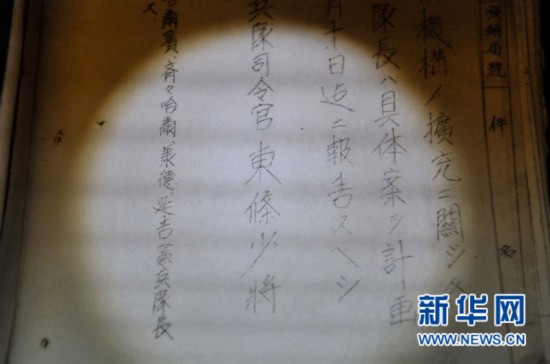 番號
件名
機構ノ擴充ニ關シ
隊長ハ具体案ヲ計畫
月十日迄ニ報告スヘシ
兵隊司令官 東條少將
哈爾賓、齊々哈爾、承德、延吉憲兵隊長
新华网
WWW.NEWS.CN